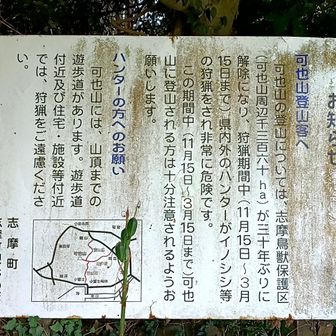 お知ら
可也山登山客へ
可也山の登山については、志摩鳥獣保護区
(可也山周辺千三百六十ha)が三十年ぶりに
解除になり、狩猟期間中(11月15日~3月
15日まで)県内外のハンターがイノシシ等
の狩猟をされ非常に危険です。
この期間中(11月15日~3月15日まで)可也
山に登山される方は十分注意されるようお
願いします。
ハンターの方へのお願い
可也山には、山頂までの
遊歩道があります。遊歩道
付近及び住宅・施設等付近
では、狩猟をご遠慮くださ
い。
志摩町